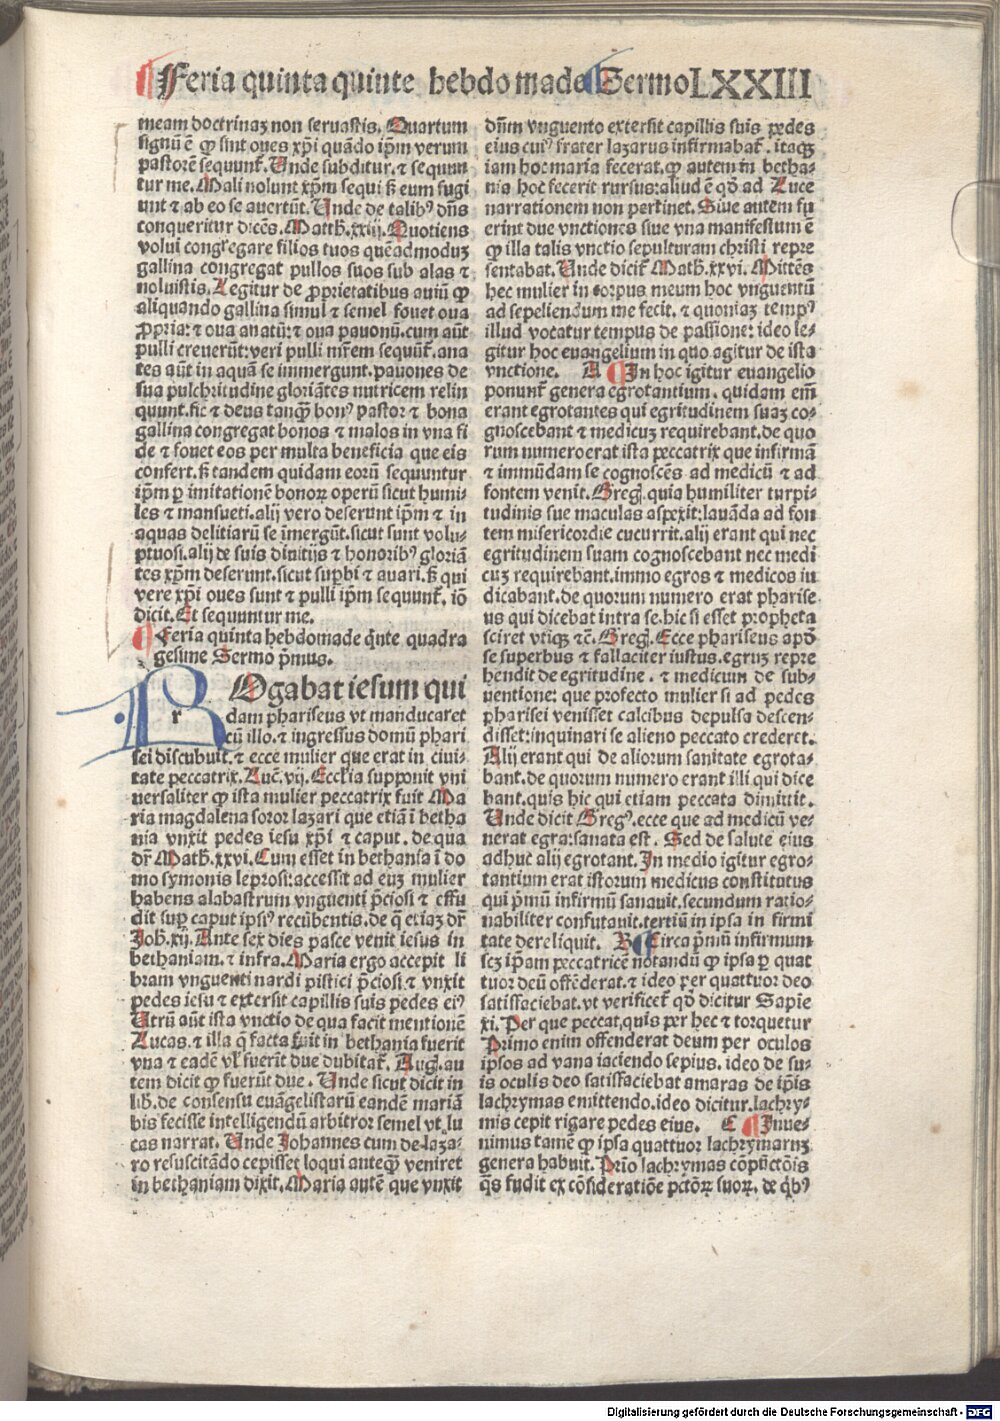 ¶ Feria quinta quinte hebdomade Sermo LXXIII
meam doctrinaz non seruastis. Quartum
signū ē ꝙ sint oues xp̄i quādo ip̄m verum
pastorē sequunt᷑. Unde subditur. ⁊ sequun
tur me. Mali nolunt xp̄m sequi sꝫ eum fugi
unt ⁊ ab eo se auertūt. Unde de talibꝰ dn̄s
conqueritur dicēs. Matth. xxiij. Quotiens
volui congregare filios tuos quēadmoduz
gallina congregat pullos suos sub alas ⁊
noluistis. Legitur de ꝓprietatibus auiū ꝙ
aliquando gallina simul ⁊ semel fouet oua
ꝓpria: ⁊ oua anatū: ⁊ oua pauonū. cum aūt
pulli creuerūt: veri pulli mr̄em sequūt᷑. ana
tes aūt in aquā se immergunt. pauones de
sua pulchritudine gloriātes nutricem relin
quunt. sic ⁊ deus tanqꝫ bonꝰ pastor ⁊ bona
gallina congregat bonos ⁊ malos in vna fi
de ⁊ fouet eos per multa beneficia que eis
confert. sꝫ tandem quidam eorū sequuntur
ip̄m ꝑ imitationē bonoꝝ operū sicut humi-
les ⁊ mansueti. alij vero deserunt ip̄m ⁊ in
aquas delitiarū se imergūt. sicut sunt volu-
ptuosi. alij de suis diuitijs ⁊ honoribꝰ gloriā
tes xp̄m deserunt. sicut suꝑbi ⁊ auari. sꝫ qui
vere xp̄i oues sunt ⁊ pulli ip̄m sequunt᷑. iō
dicit. Et sequuntur me.
¶ Feria quinta hebdomade qͥnte quadra
gesime Sermo pͥmus.
ROgabat iesum qui
dam phariseus vt manducaret
cū illo. ⁊ ingressus domū phari
sei discubuit. ⁊ ecce mulier que erat in ciui-
tate peccatrix. Luc̄. vij. Eccl̄ia supponit vni
uersaliter ꝙ ista mulier peccatrix fuit Ma
ria magdalena soror lazari que etiā i betha
nia vnxit pedes iesu xp̄i ⁊ caput. de qua
dr̄ Math̄. xxvi. Cum esset in bethania ī do
mo symonis leprosi: accessit ad euz mulier
habens alabastrum vnguenti p̄ciosi ⁊ effu
dit suꝑ caput ipsiꝰ recūbentis. de q̄ etiaz dr̄
Joh̄. xij. Ante sex dies pasce venit iesus in
bethaniam. ⁊ infra. Maria ergo accepit li
bram vnguenti nardi pistici p̄ciosi. ⁊ vnxit
pedes iesu ⁊ extersit capillis suis pedes eiꝰ
Utrū aūt ista vnctio de qua facit mentionē
Lucas. ⁊ illa q̄ facta fuit in bethania fuerit
vna ⁊ eadē vl̓ fuerīt due dubitat᷑. Aug. au
tem dicit ꝙ fuerūt due. Unde sicut dicit in
lib̄. de consensu euāgelistarū eandē mariā
bis fecisse intelligendū arbitror semel vt lu
cas narrat. Unde Johannes cum de laza-
ro resuscitādo cepisset loqui anteqꝫ veniret
in bethaniam dixit. Maria autē que vnxit
dn̄m vnguento extersit capillis suis pedes
eius cuiꝰ frater lazarus infirmabat᷑. itaqꝫ
iam hoc maria fecerat. ꝙ autem in betha-
nia hoc fecerit rursus: aliud ē qd̄ ad Luce
narrationem non pertinet. Siue autem fu
erint due vnctiones siue vna manifestum ē
ꝙ illa talis vnctio sepulturam christi repre
sentabat. Unde dicit᷑ Math. xxvi. Mittēs
hec mulier in corpus meum hoc vnguentū
ad sepeliendum me fecit. ⁊ quoniaz tempꝰ
illud vocatur tempus de passione: ideo le-
gitur hoc euangelium in quo agitur de ista
vnctione. A ¶ In hoc igitur euangelio
ponunt᷑ genera egrotantium. quidam em̄
erant egrotantes qui egritudinem suaz co-
gnoscebant ⁊ medicuz requirebant. de quo
rum numero erat ista peccatrix que infirmā
⁊ immūdam se cognoscēs ad medicū ⁊ ad
fontem venit. Greg. quia humiliter turpi-
tudinis sue maculas aspexit: lauāda ad fon
tem misericordie cucurrit. alij erant qui nec
egritudinem suam cognoscebant nec medi
cuz requirebant. immo egros ⁊ medicos iu
dicabant. de quorum numero erat pharise
us qui dicebat intra se. hic si esset propheta
sciret vtiqꝫ ⁊c̄. Greg. Ecce phariseus apd̄
se superbus ⁊ fallaciter iustus. egruz repre
hendit de egritudine. ⁊ medicum de sub-
uentione: que profecto mulier si ad pedes
pharisei venisset calcibus depulsa descen-
disset: inquinari se alieno peccato crederet.
Alij erant qui de aliorum sanitate egrota-
bant. de quorum numero erant illi qui dice
bant. quis hic qui etiam peccata dimittit.
Unde dicit Gregꝰ. ecce que ad medicū ve-
nerat egra: sanata est. Sed de salute eius
adhuc alij egrotant. In medio igitur egro-
tantium erat istorum medicus constitutus
qui pͥmū infirmū sanauit. secundum ratio-
nabiliter confutauit. tertiū in ipsa in firmi
tate dereliquit. B ¶ Circa pͥmū infirmum
scꝫ ip̄am peccatricē notandū ꝙ ipsa ꝑ quat
tuor deū offēderat. ⁊ ideo per quattuor deo
satisfaciebat. vt verificet᷑ qd̄ dicitur Sapie
xi. Per que peccat quis per hec ⁊ torquetur
Primo enim offenderat deum per oculos
ipsos ad vana iaciendo sepius. ideo de su-
is oculis deo satisfaciebat amaras de ip̄is
lachrymas emittendo. ideo dicitur. lachry-
mis cepit rigare pedes eius. C ¶ Inue-
nimus tamē ꝙ ipsa quattuor lachrymarum
genera habuit. Prīo lachrymas cōpūctōis
qͣs fudit ex cōsideratiōe pctōꝝ suoꝝ. de qͥbꝰ
Digitalisierung gefördert durch die Deutsche Forschungsgemeinschaft - DFG